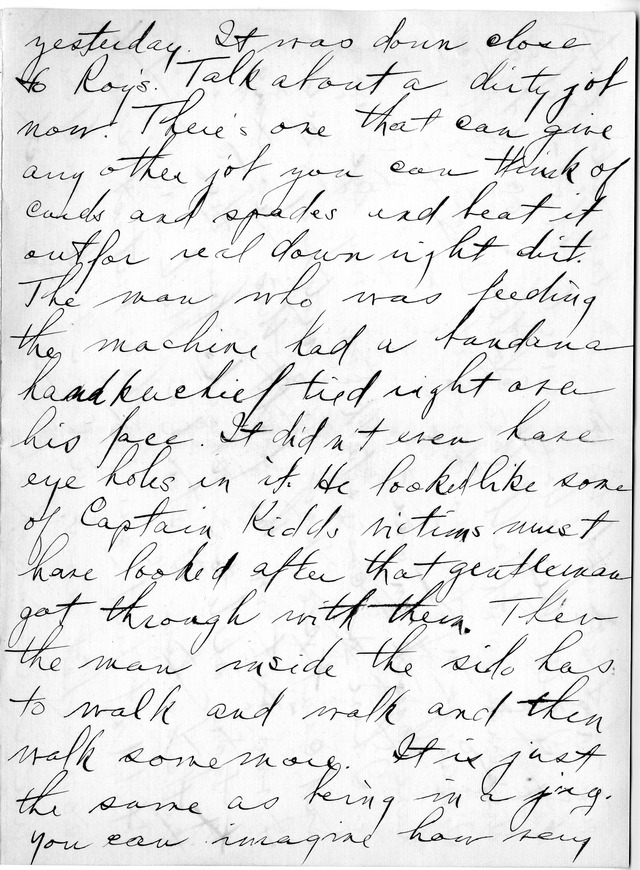 yesterday. It was down close
to Roy's. Talk about a dirty job
now! There's one that can give
any other job you can think of
cards and spades and beat it
out for real down right dirt.
The man who was feeding
the machine had a bandana
handkerchief tied right over
his face. It didn't even have
eye holes in it. He looked like some
of Captain Kidds victims must
have looked after that gentleman
got through with them. Then
the man inside the silo has
to walk and walk and then
walk somemore. It is just
the same as being in a jug.
You can imagine how very